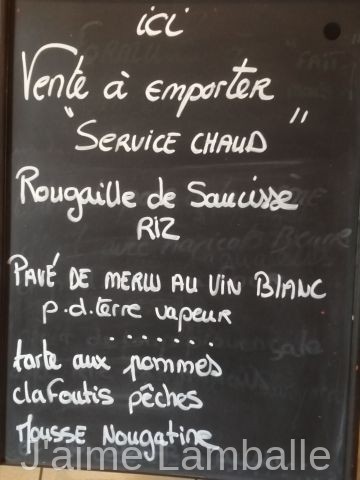 ici
Vente à emporter
"SERVICE CHAUD"
Rougaille de Saucisse
RIZ
PAVÉ DE MERLU AU VIN BLANC
p.d.terre vapeur
.......
tarte aux pommes
clafoutis pêches
Mousse Nougatine
J'aime Lamballe